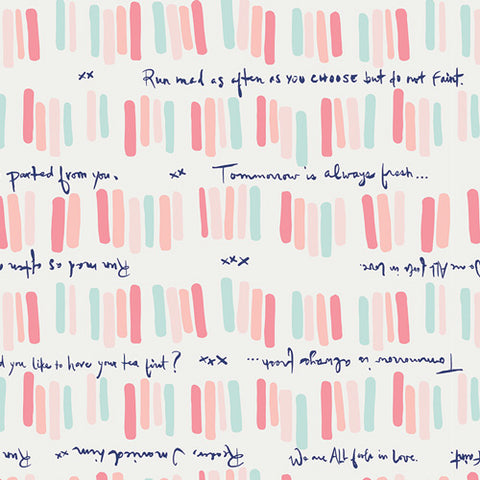 xx Run mad as often as you choose but do not faint.
parted from you. xx Tommorrow is always fresh...
Run mad as often a xxx We are All fools in Love.
d you like to have your tea first? xxx Tommorrow is always fresh...
Run Reader, I married him xx We are All fools in Love. Faint.